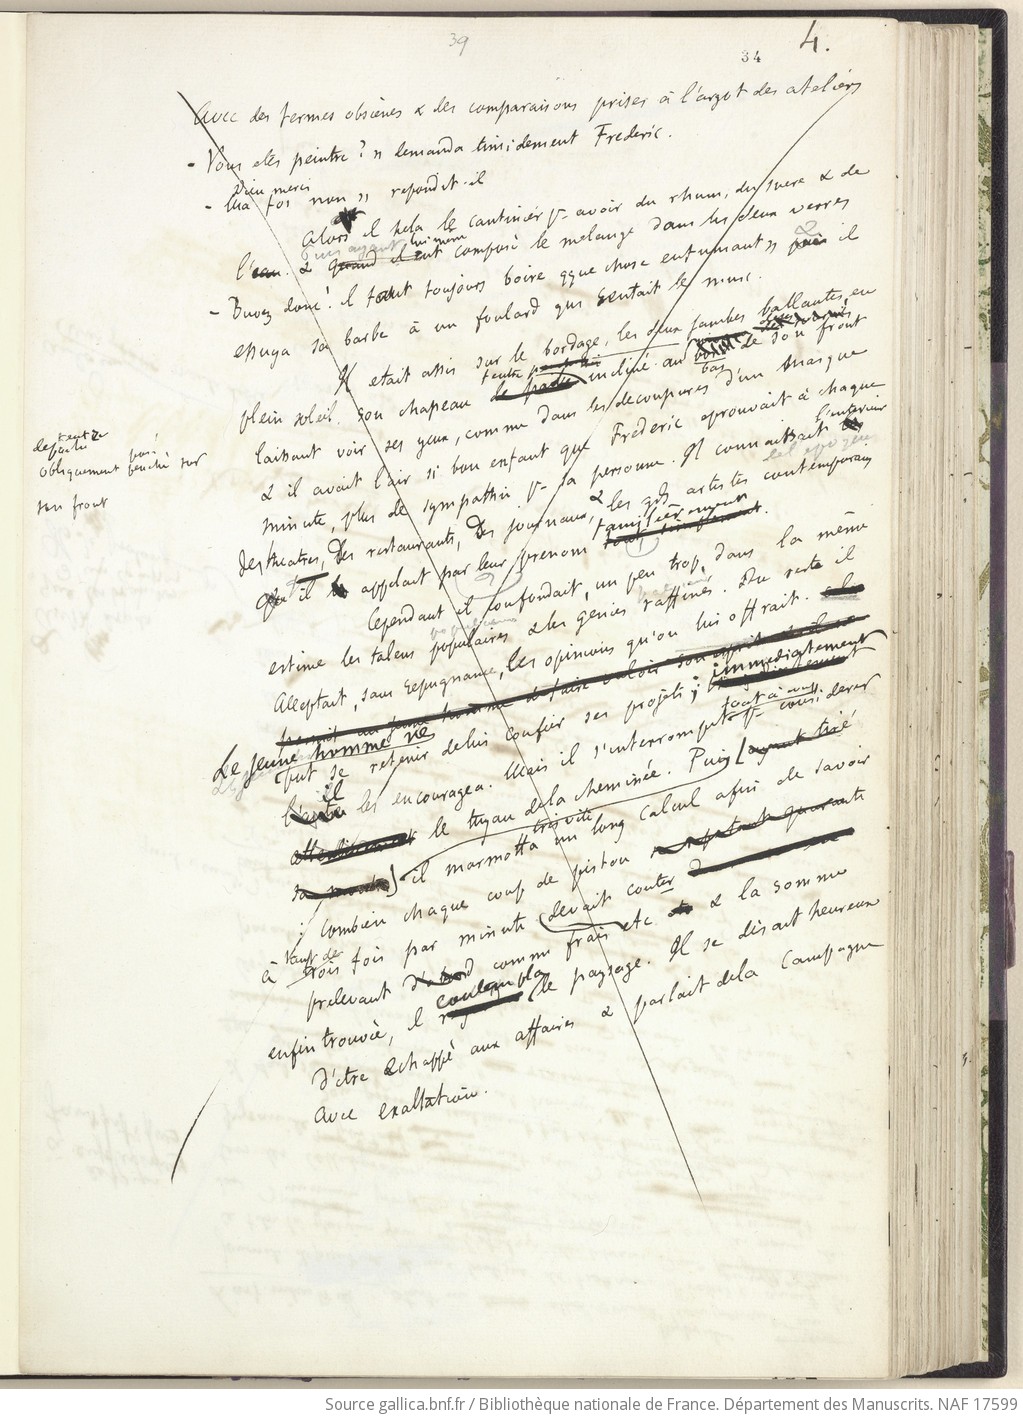 39
34
4.
avec des termes obscènes & des comparaisons prises à l'argot des ateliers
- Vous etes peintre? » demanda timidement Frederic.
Dieu merci
- Ma foi non » repondit-il
Alors il hela le cantinier pr avoir du rhum, du sucre & de
l'eau. & quand il eut composé le melange dans les deux verres
puis ayant lui même
- Buvez donc! il faut toujours boire qque chose en fumant » puis il
&
essuya sa barbe à un foulard qui sentait le musc.
Il etait assis sur le bordage, les deux jambes ballantes, en
plein soleil. son chapeau incliné au bas de son front
feutre
laissant voir ses yeux, comme dans les decoupures d'un masque
& il avait l'air si bon enfant que Frederic eprouvait à chaque
minute, plus de sympathie pr sa personne. Il connaissait l'interieur
feutre
obliquement penché sur
son front
des theatres, Des restaurants, Des journaux, & les gds artistes contemporains
qu'il appelait par leur prenom familièrement
tout simplement.
Cependant il confondait, un peu trop, dans la même
estime les talens populaires & les genies raffinés. Du reste il
acceptait, sans repugnance, les opinions qu'on lui offrait.
Le jeune homme ne
put se retenir de lui confier ses projets; immediatement
il
l'autre les encouragea. Mais il s'interrompit tout à coup pr considerer
le tuyau de la cheminée. Puis [ayant tiré
sa montre] il marmotta très vite un long calcul afin de savoir
: combien chaque coup de piston
à tant de fois par minute devait couter
trois
prelevant d'abord comme frais etc & la somme
enfin trouvée, il contempla le paysage. Il se disait heureux
D'etre echappé aux affaires & parlait de la campagne
avec exaltation.
Source gallica.bnf.fr / Bibliothèque nationale de France. Département des Manuscrits. NAF 17599